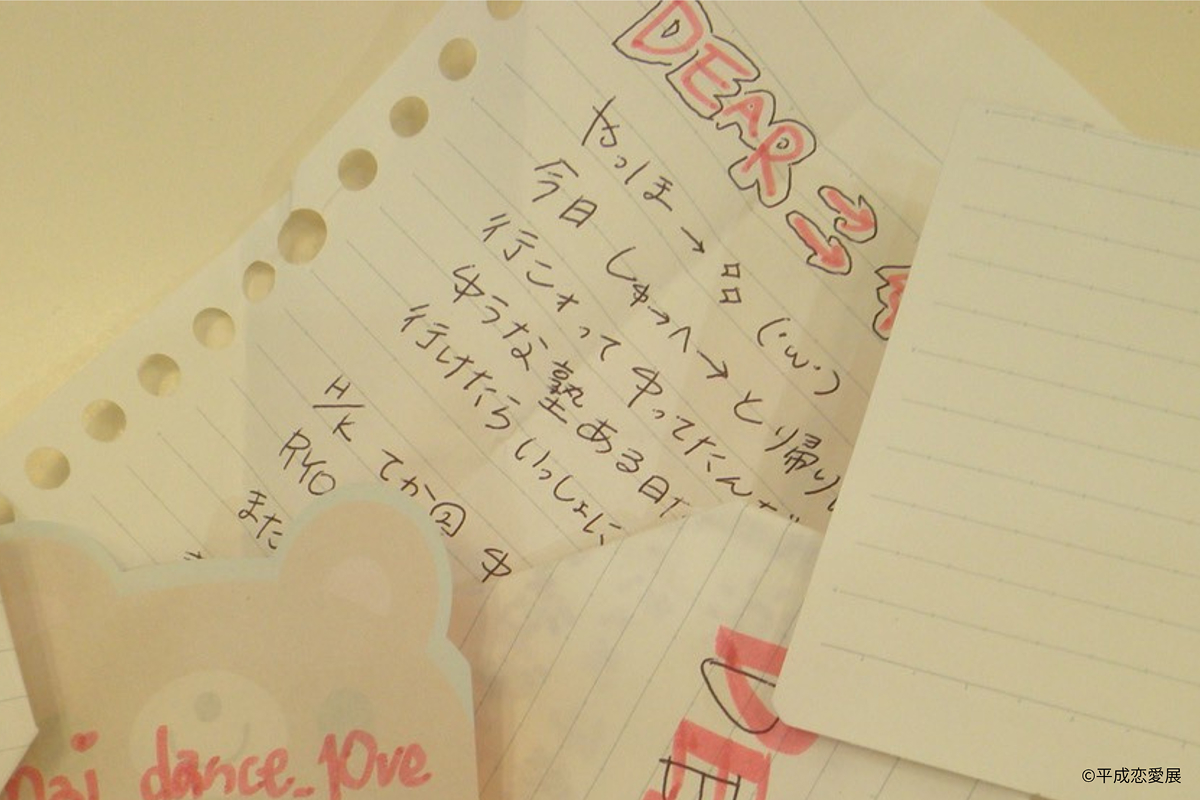 DEAR →→
やっほ→品(´ω`)
今日しゅ→へ→と帰り
行こォってゆってたんだ
ゆうな塾ある日だ
行けたらいっしょに
H/K てか②ゆ
RYO
また
DE
dance_love
©平成恋愛展